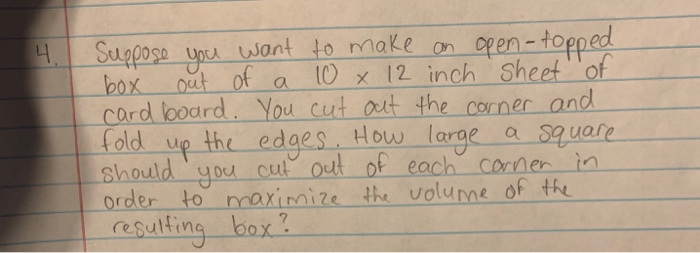 4. Suppose you want to make an open-topped
box out of a 10 x 12 inch sheet of
cardboard. You cut out the corner and
fold up the edges. How large a square
should you cut out of each corner in
order to maximize the volume of the
resulting box?